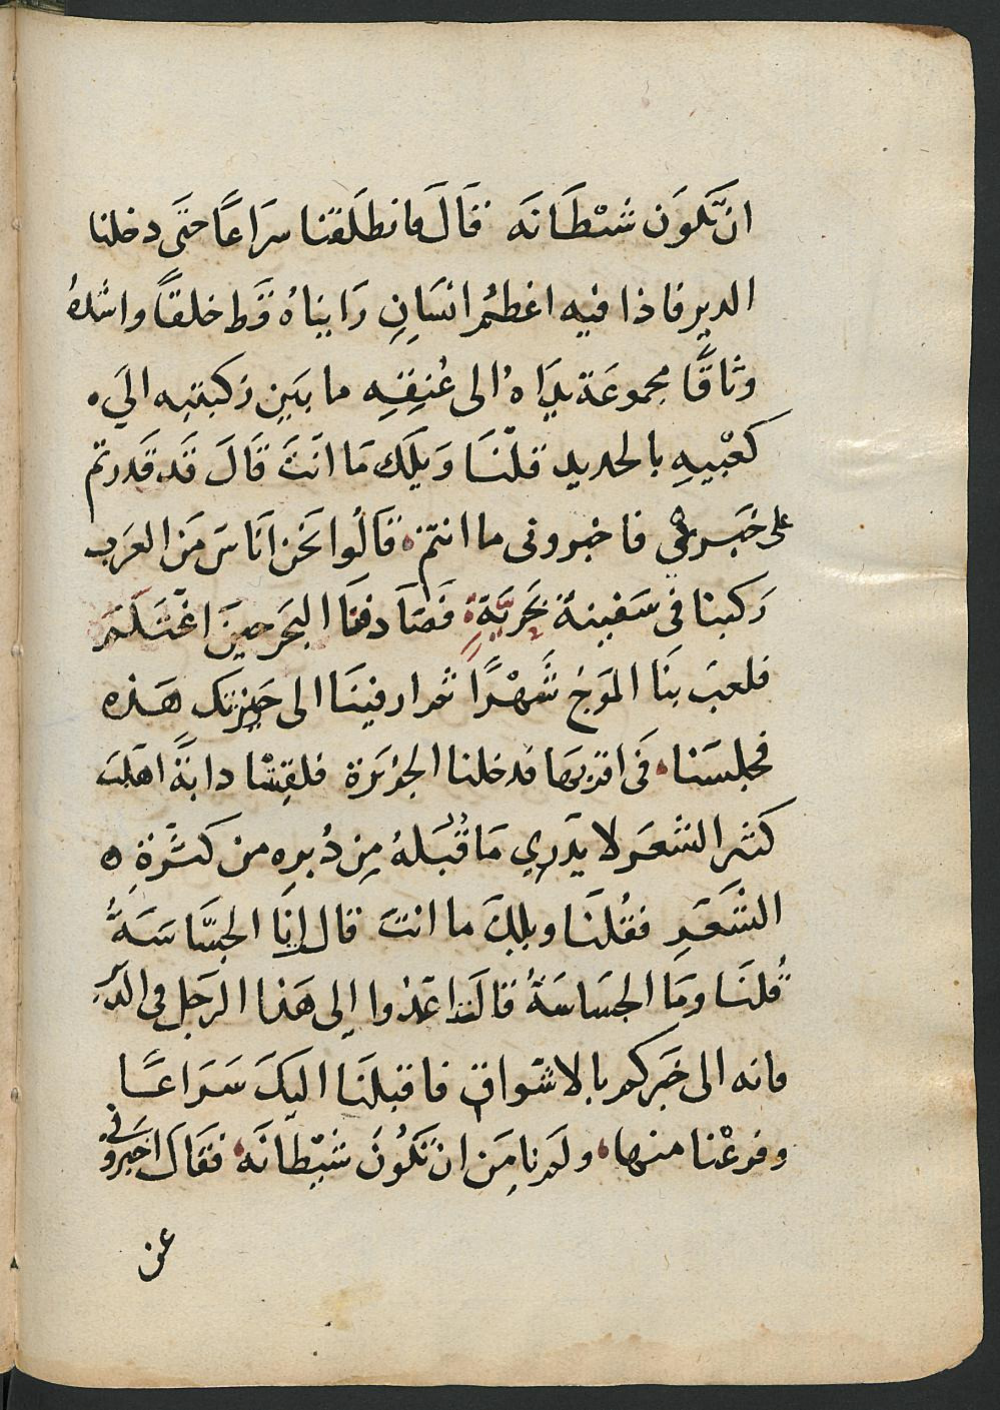 ان تَكوَن شَيْطَانَه قَالَ فانطلَقنا سرَاعًا حتَى دخلنا
الدير فاذا فيه اعظمُ انسَانٍ رَايناهُ قَط خلقًا واشدهُ
وثاقًا مجموعَة يدَاهُ الى عُنقِهِ ما بَين رَكبتيه الىَ
كعْبيهِ بالحديد قلْنَا وَيلَك مَا انَتَ قَالَ قَد قَدرتم
على خبَرى فاخبرونى ما انتم قَالُوا نَحَن انَاسَ مَن العرَب
رَكبنا فى سَفينة بَحَريَّةٍ فصَادفنَا البَحَر حينَ اغْتَلَمَ
فلعبَ بنَا الموَج شَهْرًا ثم ارفينَا الى جزيرتك هَذه
فجلسَنا فَى اقربها فدخلنا الجزيَرة فلقِتْنا دابةً اهَلبَ
كثير الشعَر لا يدَرِي مَا قُبَلهُ مِن دُبرِه من كثْرَةِ
الشَعَرِ فقُلنَا ويلكَ ما انتَ قال انَا الجسَّاسَةُ
قُلنَا ومَا الجسَاسَةُ قالت اعمَدُوا إلى هَذا الرَجلِ فى الديَرِ
فانه الى خَبَركم بالاشَواق فاقبلنَا اليَكَ سَرَاعًا
وفزعْنا منها ولم نامَن ان تَكُونَ شَيْطانَه فقَالَ اخَبرونى
عن